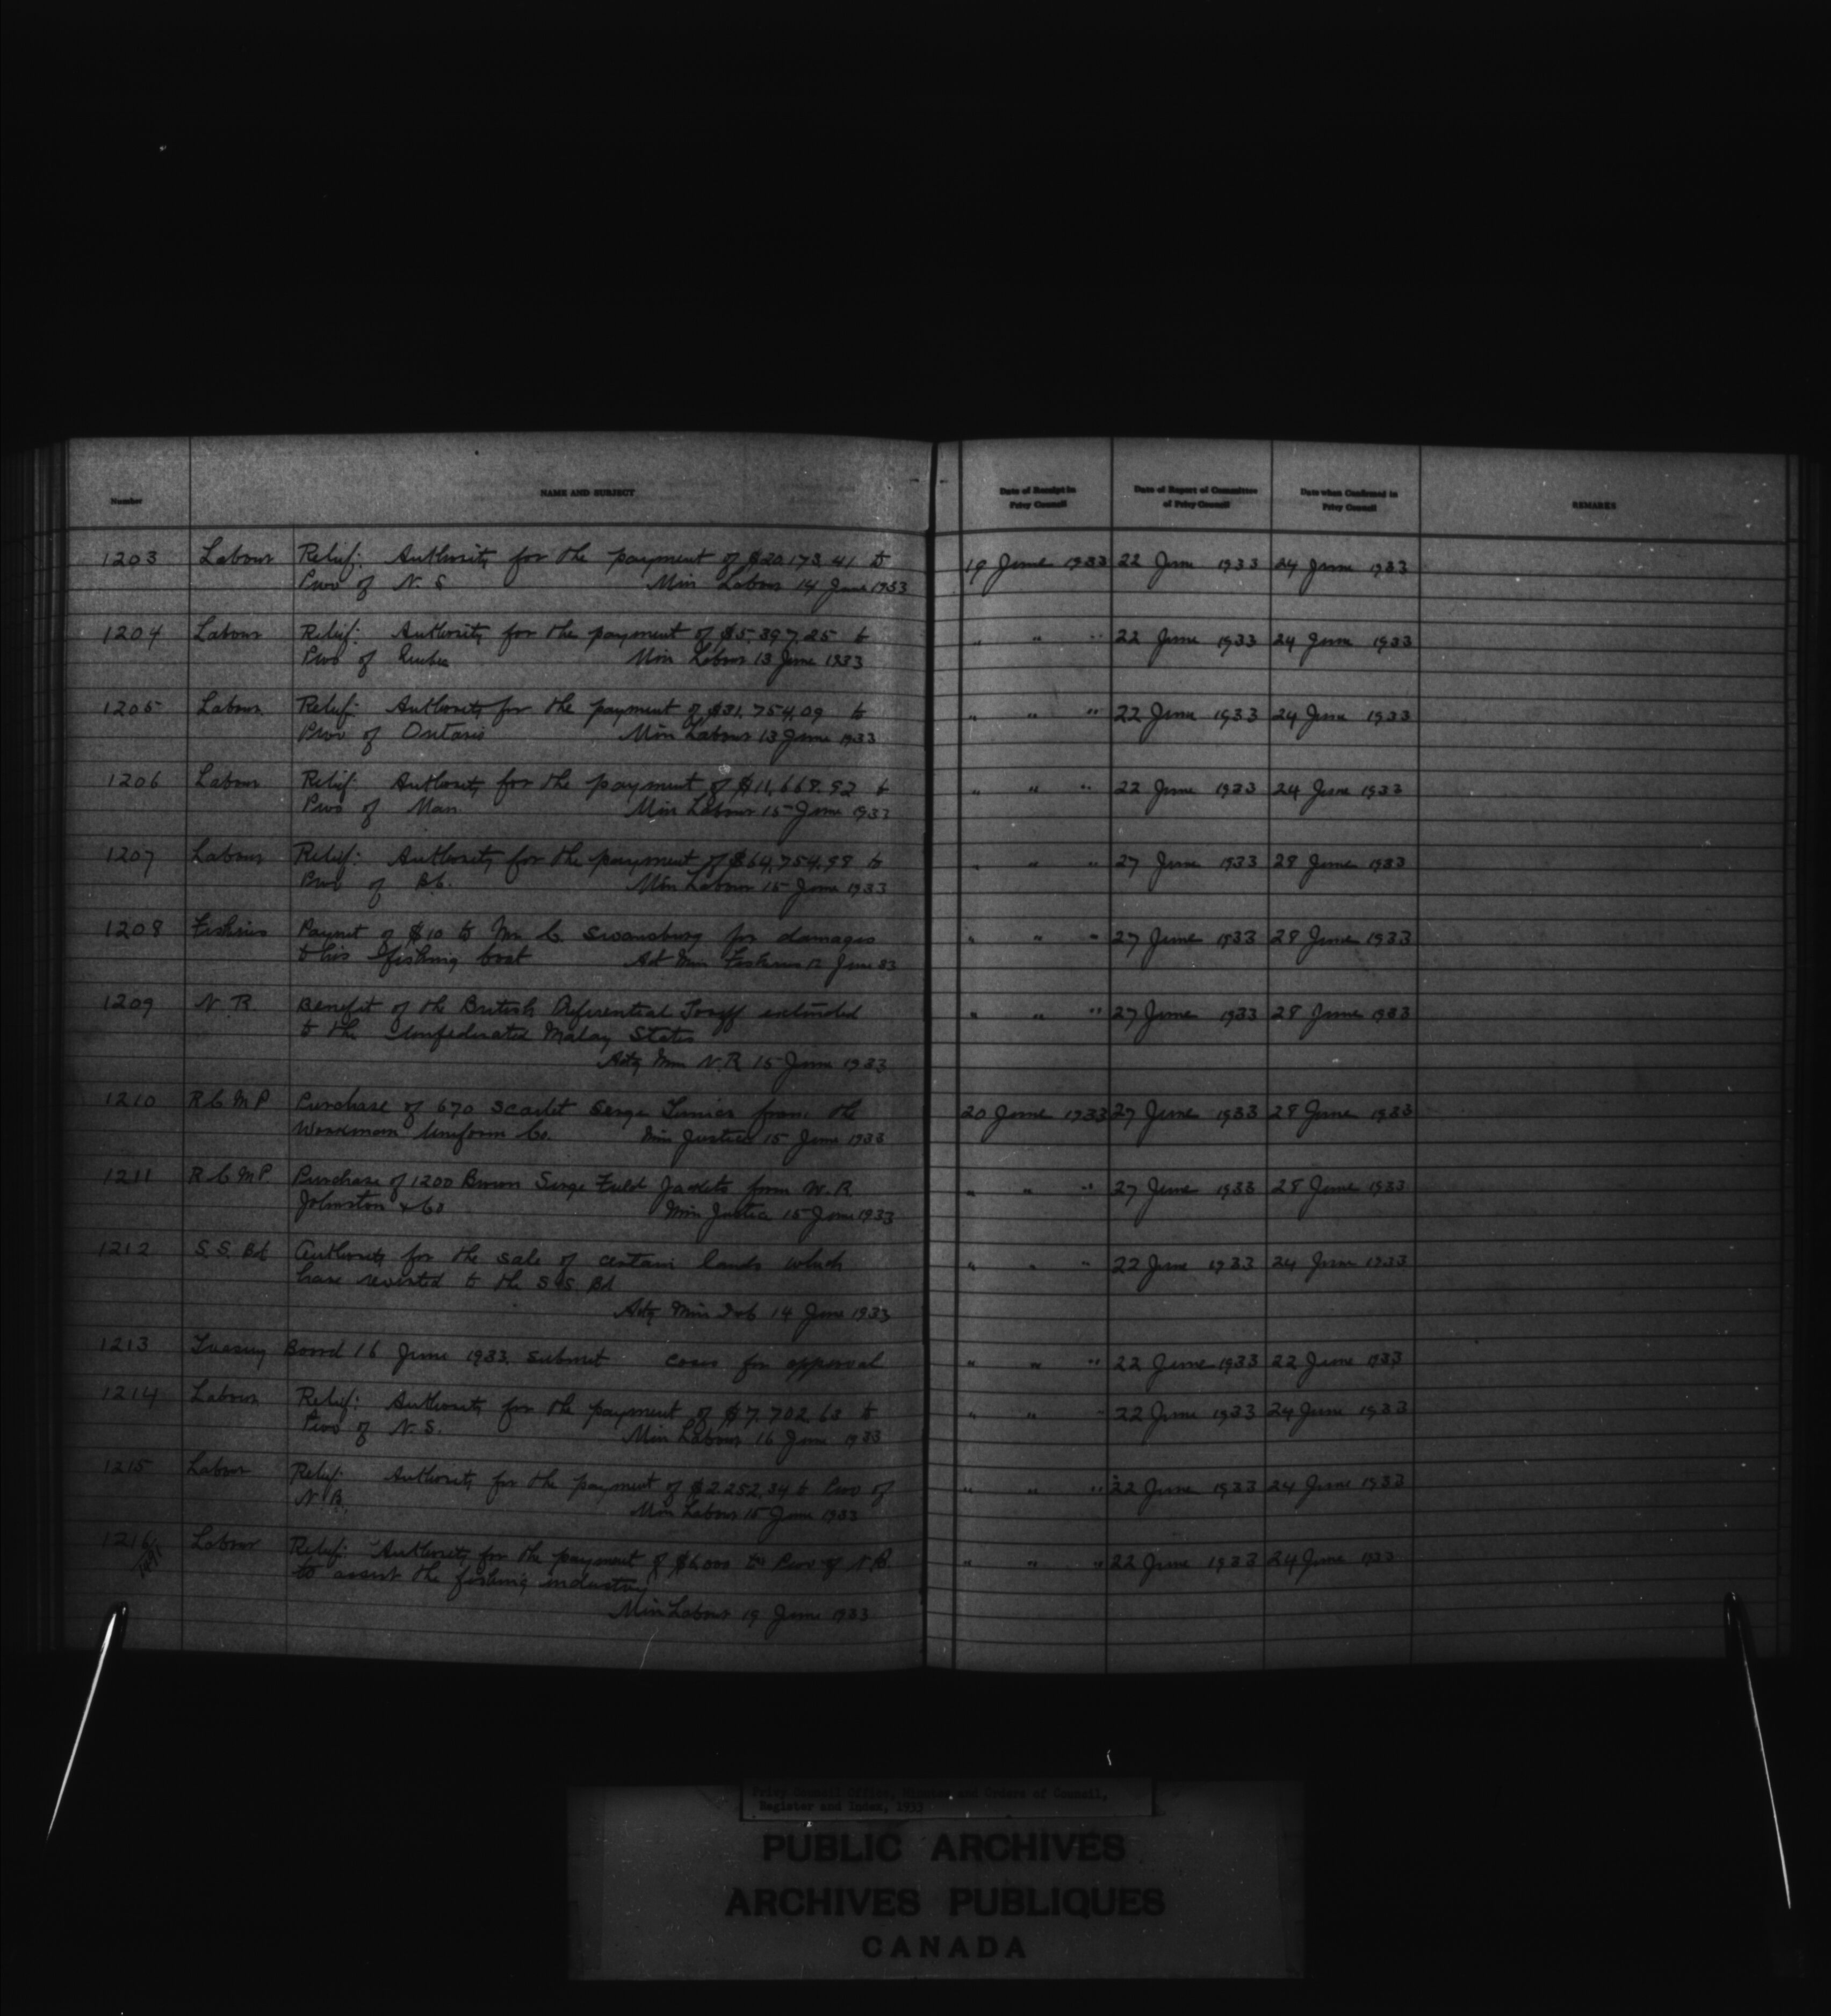 Number NAME AND SUBJECT Date of Receipt in Privy Council Date of Report of Committee of Privy Council Date when Confirmed in Privy Council REMARKS
1203 Labour Relief: Authority for the payment of $20,173.41 to 19 June 1933 22 June 1933 24 June 1933
Prov of N. S Min Labour 14 June 1933
1204 Labour Relief: Authority for the payment of $5,397.25 to " " " 22 June 1933 24 June 1933
Prov of Quebec Min Labour 13 June 1933
1205 Labour Relief: Authority for the payment of $31,754.09 to " " " 22 June 1933 24 June 1933
Prov of Ontario Min Labour 13 June 1933
1206 Labour Relief Authority for the payment of $11,668.92 to " " " 22 June 1933 24 June 1933
Prov of Man. Min Labour 15 June 1933
1207 Labour Relief: Authority for the payment of $64,754.98 to " " " 27 June 1933 28 June 1933
Prov of B.C. Min Labour 15 June 1933
1208 Fisheries Paymt of $10 to Mr C. Swansburg for damages " " " 27 June 1933 28 June 1933
to his fishing boat Act Min Fisheries 12 June 33
1209 N. R. Benefit of the British Preferential Tariff extended " " " 27 June 1933 28 June 1933
to the Unfederated Malay States
Actg Min N.R 15 June 1933
1210 R C M P Purchase of 670 Scarlet Serge Tunics from the 20 June 1933 27 June 1933 28 June 1933
Workman Uniform Co. Min Justice 15 June 1933
1211 R C M P Purchase of 1200 Brown Serge Field Jackets from W. R. " " " 27 June 1933 28 June 1933
Johnston & Co Min Justice 15 June 1933
1212 S. S. Bd Authority for the sale of certain lands which " " " 22 June 1933 24 June 1933
have reverted to the S.S. Bd
Actg Min Int 14 June 1933
1213 Treasury Board 16 June 1933. Submit cases for approval " " " 22 June 1933 22 June 1933
1214 Labour Relief: Authority for the payment of $7,702.63 to " " " 22 June 1933 24 June 1933
Prov of N. S. Min Labour 16 June 1933
1215 Labour Relief: Authority for the payment of $2,252.34 to Prov of " " " 22 June 1933 24 June 1933
N B. Min Labour 15 June 1933
1216 Labour Relief: Authority for the payment of $6,000 to Prov of N.B. " " " 22 June 1933 24 June 1933
to assist the fishing industry
Min Labour 19 June 1933
Privy Council Office, Minutes and Orders of Council,
Register and Index, 1933
PUBLIC ARCHIVES
ARCHIVES PUBLIQUES
CANADA